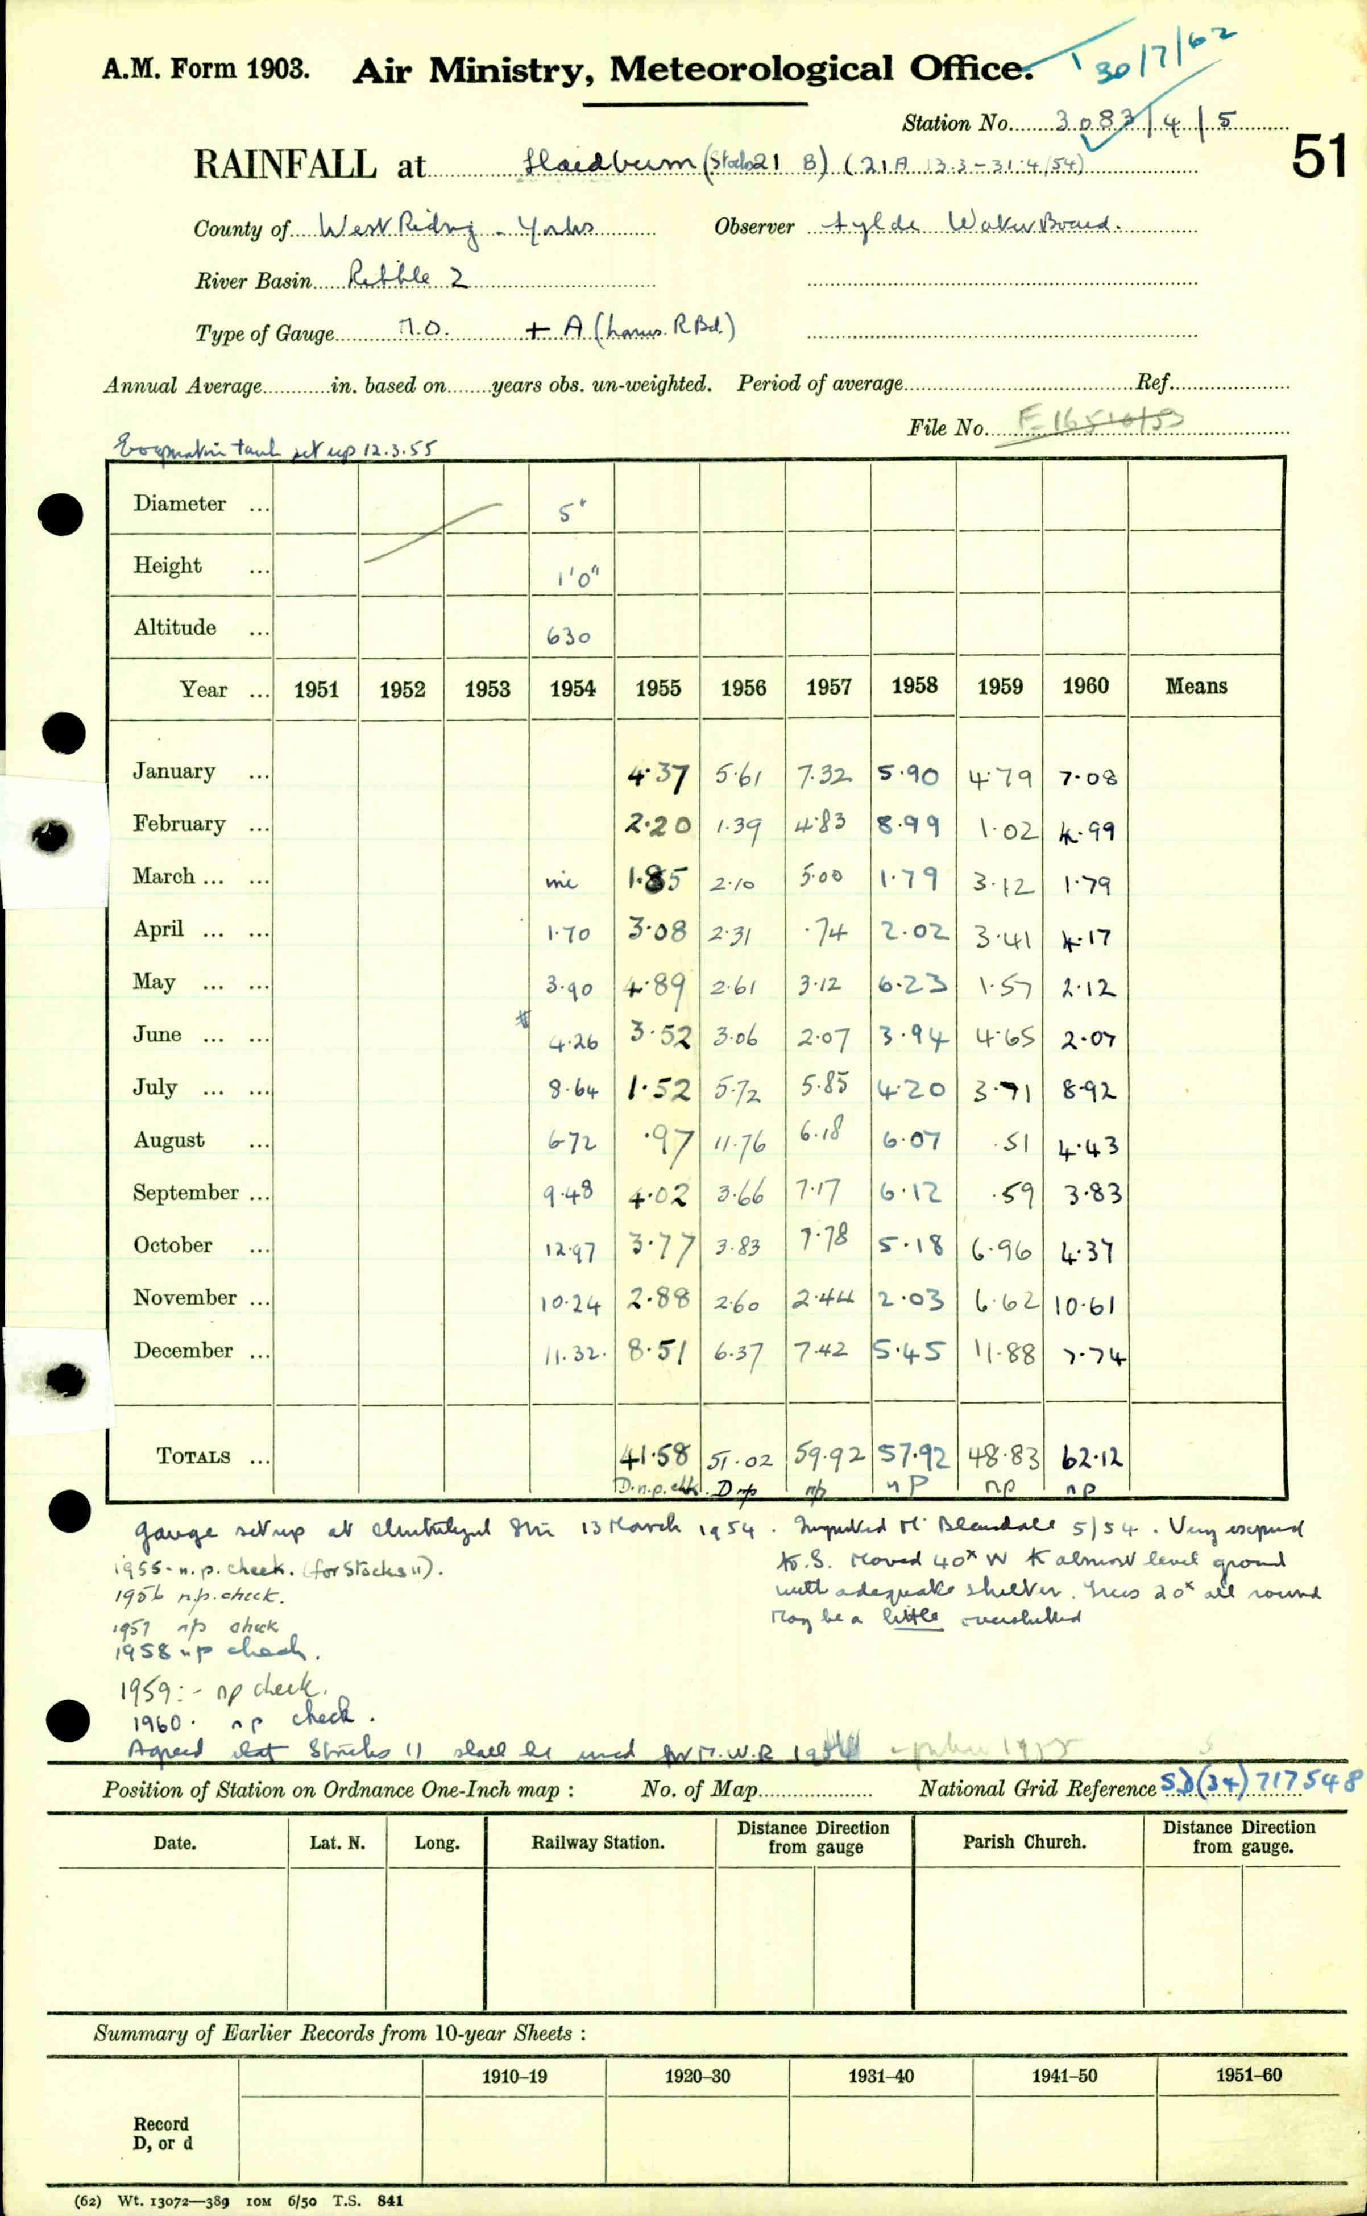 30/7/62
A.M. Form 1903. Air Ministry, Meteorological Office.
Station No. 3083/4/5
51
RAINFALL at Slaidburn (Stocks 21 B) (21A 13.3-31.4/54)
County of West Riding - Yorks Observer Fylde Water Board.
River Basin Ribble 2
Type of Gauge M.O. + A (Lancs. R Bd.)
Annual Average in. based on years obs. un-weighted. Period of average Ref.
File No.
Evaporation tank set up 12.3.55
Diameter ... 5"
Height ... 1'0"
Altitude ... 630
Year ... 1951 1952 1953 1954 1955 1956 1957 1958 1959 1960 Means
January ... 4.37 5.61 7.32 5.90 4.79 7.08
February ... 2.20 1.39 4.83 8.99 1.02 4.99
March ... ... inc 1.85 2.10 5.00 1.79 3.12 1.79
April ... ... 1.70 3.08 2.31 .74 2.02 3.41 4.17
May ... ... 3.90 4.89 2.61 3.12 6.23 1.57 2.12
June ... ... 4.26 3.52 3.06 2.07 3.94 4.65 2.07
July ... ... 8.64 1.52 5.72 5.85 4.20 3.71 8.92
August ... 6.72 .97 11.76 6.18 6.07 .51 4.43
September ... 9.48 4.02 3.66 7.17 6.12 .59 3.83
October ... 12.97 3.77 3.83 7.78 5.18 6.96 4.37
November ... 10.24 2.88 2.60 2.44 2.03 6.62 10.61
December ... 11.32. 8.51 6.37 7.42 5.45 11.88 7.74
TOTALS ... 41.58 51.02 59.92 57.92 48.83 62.12
D.n.p. chk. D np np np np np
Gauge set up at Stn 13 March 1954. Inspected Mr Bleasdale 5/54. Very exposed
to S. Moved 40ˣ W to almost level ground
with adequate shelter. Trees 20ˣ all round
May be a little oversheltered
1955 - n.p. check. (for Stocks 11).
1956 n.p. check.
1957 n/p check
1958 n p check.
1959:- np check.
1960. n p check.
Agreed that Stocks 11 shall be used for M.W.R
Position of Station on Ordnance One-Inch map : No. of Map National Grid Reference SD(34) 717548
Date. Lat. N. Long. Railway Station. Distance Direction from gauge Parish Church. Distance Direction from gauge.
Summary of Earlier Records from 10-year Sheets :
1910–19 1920–30 1931–40 1941–50 1951–60
Record
D, or d
(62) Wt. 13072—389 10M 6/50 T.S. 841